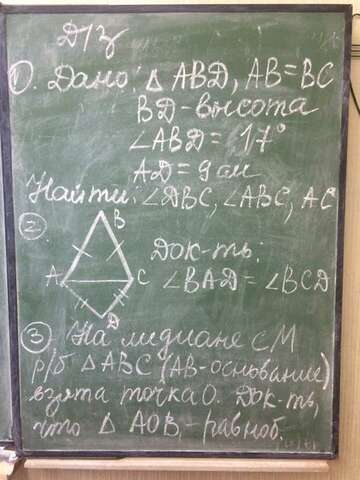 Д/З
①. Дано: △ ABD, AB=BC
BD-высота
∠ABD = 17°
AD = 9 дм
Найти: ∠DBC, ∠ABC, AC
②
B
Док-ть:
A C ∠BAD = ∠BCD
D
③ На медиане CM
р/б △ABC (AB-основание)
взята точка O. Док-ть,
что △ AOB,-равноб.